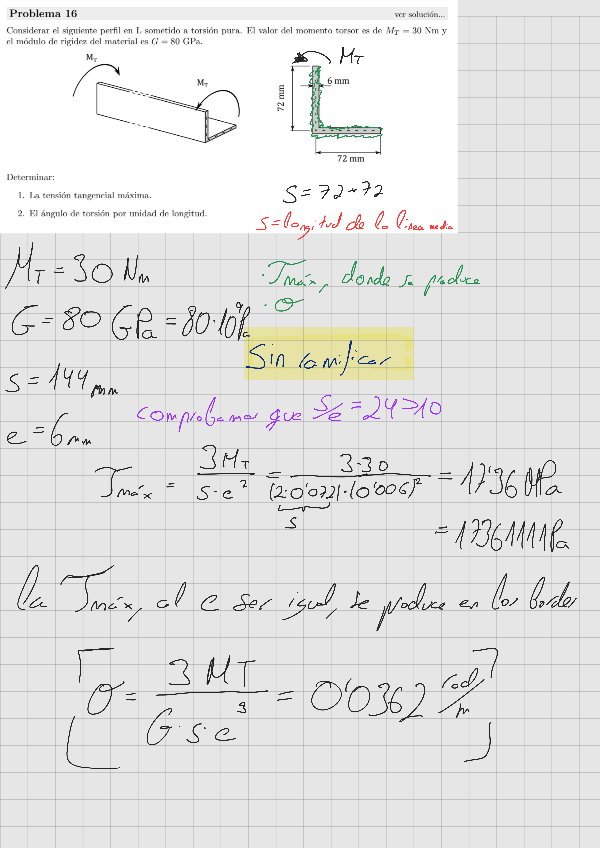 Problema 16
ver solución...
Considerar el siguiente perfil en L sometido a torsión pura. El valor del momento torsor es de M_T = 30 Nm y
el módulo de rigidez del material es G = 80 GPa.
M_T
M_T
M_T
6 mm
72 mm
72 mm
Determinar:
1. La tensión tangencial máxima.
2. El ángulo de torsión por unidad de longitud.
S = 72+72
S = longitud de la linea media
M_T = 30 Nm
· τmáx, donde se produce
· θ
G = 80 GPa = 80·10⁹Pa
Sin ramificar
S = 144 mm
comprobamos que S/e = 24 > 10
e = 6 mm
τmáx = 3M_T / S·e² = 3·30 / (2·0'072)·(0'006)² = 17'36 MPa
S
= 17361111Pa
la τmáx, al e ser igual, se produce en los bordes
θ = 3 MT / G·S·e³ = 0'0362 rad/m